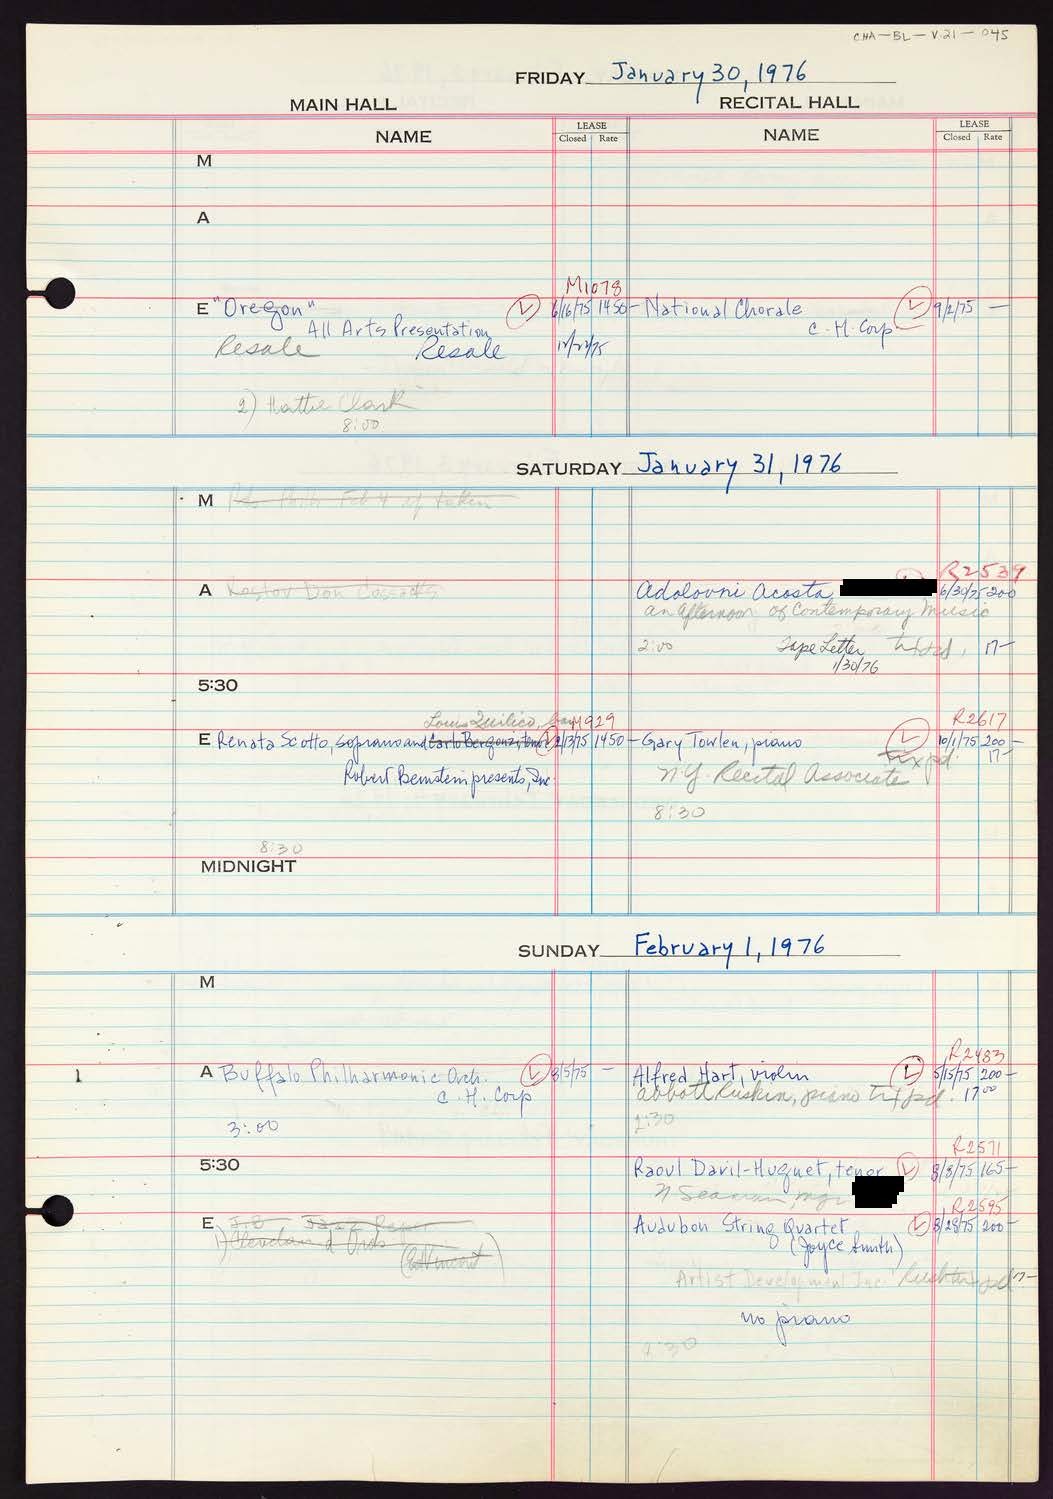 CHA-BL-V.21-045
FRIDAY January 30, 1976
MAIN HALL RECITAL HALL
NAME LEASE Closed Rate NAME LEASE Closed Rate
M
A
M1078
E "Oregon" 6/16/75 1450- National Chorale 9/2/75 —
All Arts Presentation C.H. Corp
Resale Resale 12/22/75
2) Hattie Clark
8:00
SATURDAY January 31, 1976
M Feb 4 if taken
R2539
A Rostov Don Cossacks Adolovni Acosta 6/30/75 200
an Afternoon of Contemporary Music
2:00 Tape Letter 17-
1/30/76
5:30
Louis Quilico, bar M929 R2617
E Renata Scotto, soprano and Carlo Bergonzi, tenor 2/13/75 1450- Gary Towlen, piano 10/1/75 200-
Robert Bernstein presents, Inc. tix pd. 17-
N.Y. Recital Associates
8:30
8:30
MIDNIGHT
SUNDAY February 1, 1976
M
R2483
1 A Buffalo Philharmonic Orch. 3/5/75 — Alfred Hart, violin 5/15/75 200-
C.H. Corp Abbott Ruskin, piano tix pd. 17.00
3:00 2:30
R2571
5:30 Raoul Davil-Huguet, tenor 8/8/75 165-
N Seaman, mgr
R2595
E J.B. Jazz Reper Audubon String Quartet 8/28/75 200-
1) Cleveland Orch (Joyce Smith)
Artist Development Inc. tix pd 17-
no piano
8:30